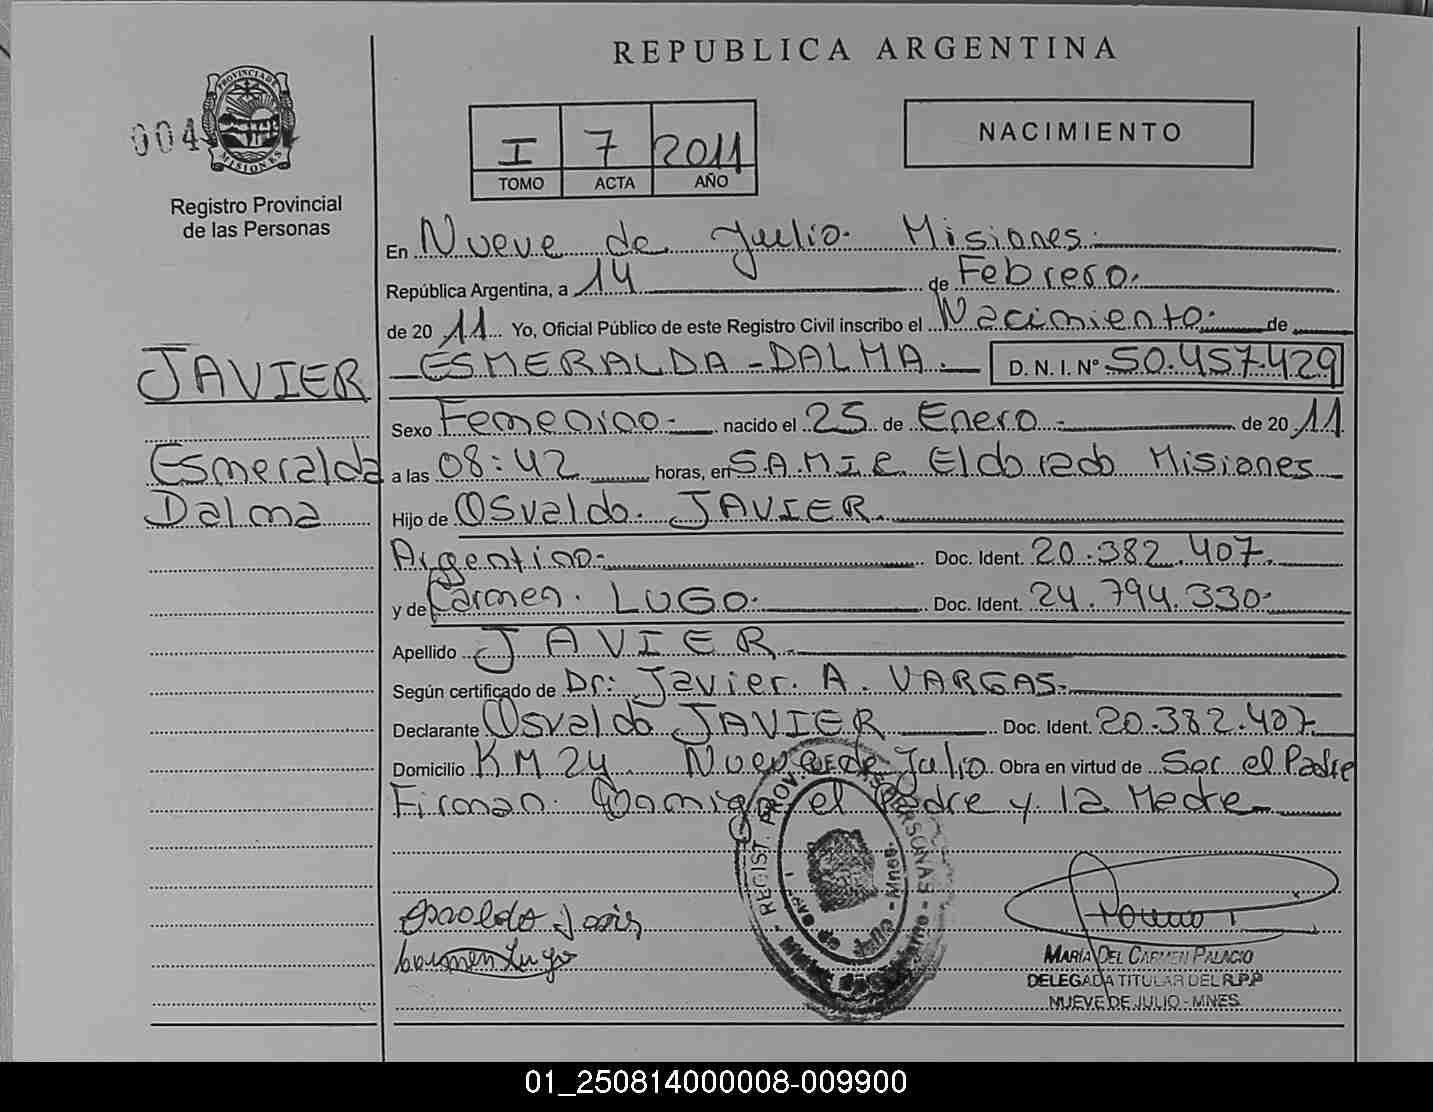 REPUBLICA ARGENTINA
PROVINCIA DE
MISIONES
004
Registro Provincial
de las Personas
I 7 2011
TOMO ACTA AÑO
NACIMIENTO
En Nueve de Julio. Misiones.
República Argentina, a 14 de Febrero.
de 20 11 Yo, Oficial Público de este Registro Civil inscribo el Nacimiento. de
ESMERALDA - DALMA. D. N. I. Nº 50.457.429
JAVIER
Esmeralda
Dalma
Sexo Femenino. nacido el 25 de Enero. de 20 11
a las 08:42 horas, en S.A.M.I.C. Eldorado Misiones
Hijo de Osvaldo. JAVIER.
Argentino. Doc. Ident. 20.382.407.
y de Carmen. LUGO. Doc. Ident. 24.794.330.
Apellido JAVIER.
Según certificado de Dr: Javier. A. VARGAS.
Declarante Osvaldo JAVIER Doc. Ident. 20.382.407.
Domicilio KM 24 Nueve de Julio Obra en virtud de Ser el Padre
Firman. Conmigo el Padre y la Madre
REGIST. PROV. DE LAS PERSONAS
Osvaldo Javier
Carmen Lugo
MARÍA DEL CARMEN PALACIO
DELEGADA TITULAR DEL R.P.P
NUEVE DE JULIO - MNES.
01_250814000008-009900